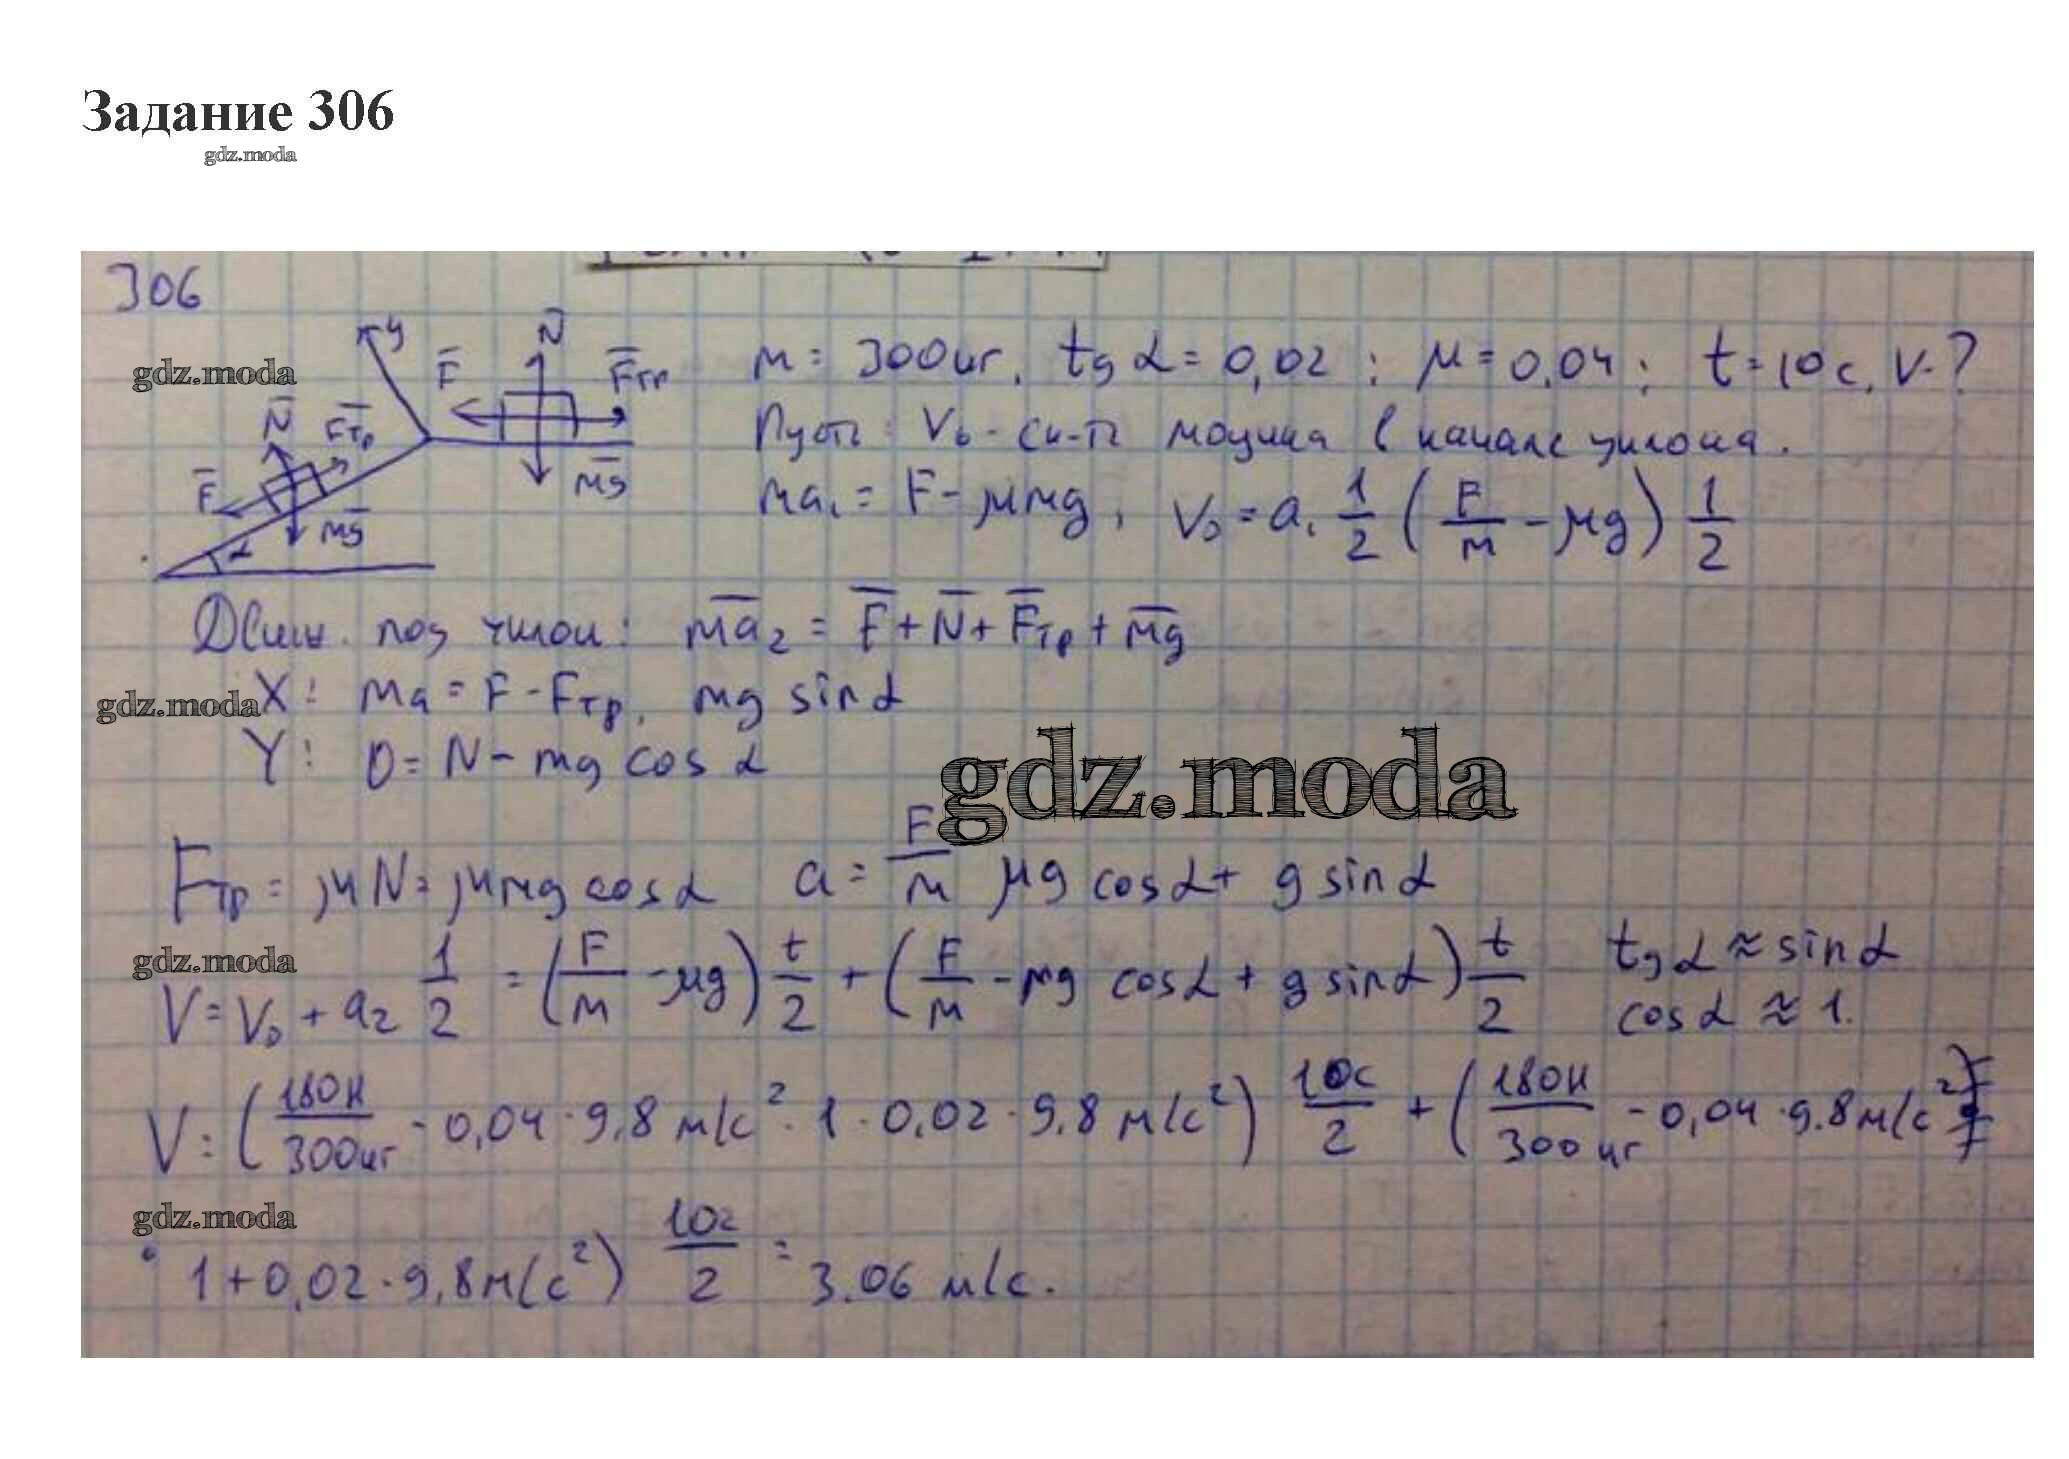 Задание 306
gdz.moda
306
y
F̄ N̄ F̄тр m̄g
gdz.moda
N̄ F̄тр F̄ m̄g α
m = 300кг, tg α = 0,02 ; μ = 0,04 ; t = 10с, V-?
Пусть V₀ - ск-ть мотоцикла в начале уклона.
ma₁ = F - μmg, V₀ = a₁ 1/2 (F/m - μg) 1/2
Движ. под : ma̅₂ = F̄ + N̄ + F̄тр + m̄g
gdz.moda
X: ma = F - Fтр, mg sin α
Y: 0 = N - mg cos α
gdz.moda
Fтр = μN = μmg cos α a = F/m μg cos α + g sin α
gdz.moda
V = V₀ + a₂ 1/2 = (F/m - μg) t/2 + (F/m - μg cos α + g sin α) t/2 tg α ≈ sin α
cos α ≈ 1.
V = (180Н/300кг - 0,04 · 9,8 м/с² · 1 · 0,02 · 9,8 м/с²) 10с/2 + (180Н/300кг - 0,04 · 9.8 м/с²)
gdz.moda
· 1 + 0,02 · 9,8 м/с²) 10с/2 = 3.06 м/с.